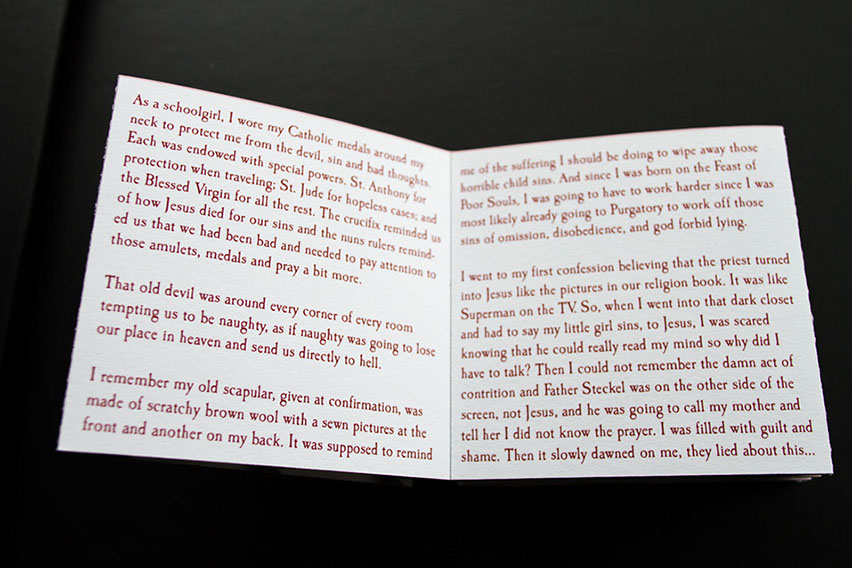 As a schoolgirl, I wore my Catholic medals around my
neck to protect me from the devil, sin and bad thoughts.
Each was endowed with special powers. St. Anthony for
protection when traveling; St. Jude for hopeless cases; and
the Blessed Virgin for all the rest. The crucifix reminded us
of how Jesus died for our sins and the nuns rulers remind-
ed us that we had been bad and needed to pay attention to
those amulets, medals and pray a bit more.
That old devil was around every corner of every room
tempting us to be naughty, as if naughty was going to lose
our place in heaven and send us directly to hell.
I remember my old scapular, given at confirmation, was
made of scratchy brown wool with a sewn pictures at the
front and another on my back. It was supposed to remind
me of the suffering I should be doing to wipe away those
horrible child sins. And since I was born on the Feast of
Poor Souls, I was going to have to work harder since I was
most likely already going to Purgatory to work off those
sins of omission, disobedience, and god forbid lying.
I went to my first confession believing that the priest turned
into Jesus like the pictures in our religion book. It was like
Superman on the TV. So, when I went into that dark closet
and had to say my little girl sins, to Jesus, I was scared
knowing that he could really read my mind so why did I
have to talk? Then I could not remember the damn act of
contrition and Father Steckel was on the other side of the
screen, not Jesus, and he was going to call my mother and
tell her I did not know the prayer. I was filled with guilt and
shame. Then it slowly dawned on me, they lied about this...